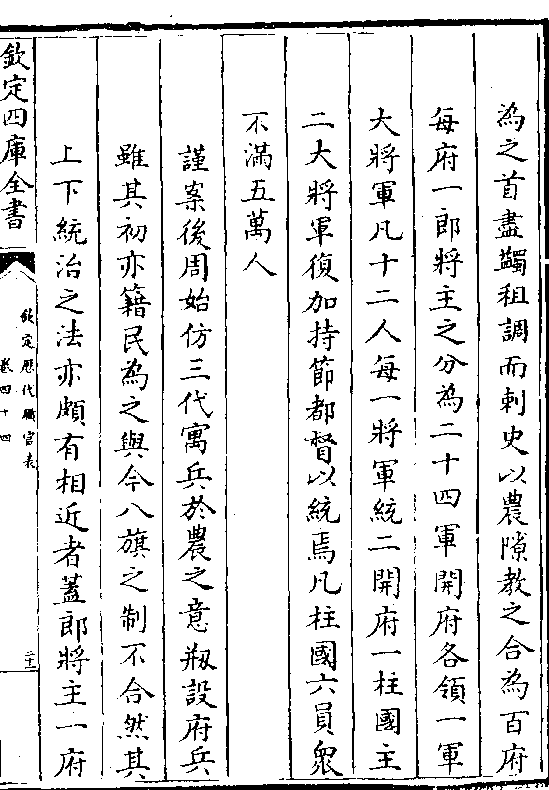 為之首盡蠲租調而刺史以農隙教之合為百府
每府一郎將主之分為二十四軍開府各領一軍
大將軍凡十二人每一將軍統二開府一柱國主
二大將軍復加持節都督以統焉凡柱國六員衆
不滿五萬人
謹案後周始仿三代寓兵於農之意剏設府兵
雖其初亦籍民為之與今八旗之制不合然其
上下統治之法亦頗有相近者蓋郎將主一府
欽定四庫全書
欽定歷代職官表
卷四十四